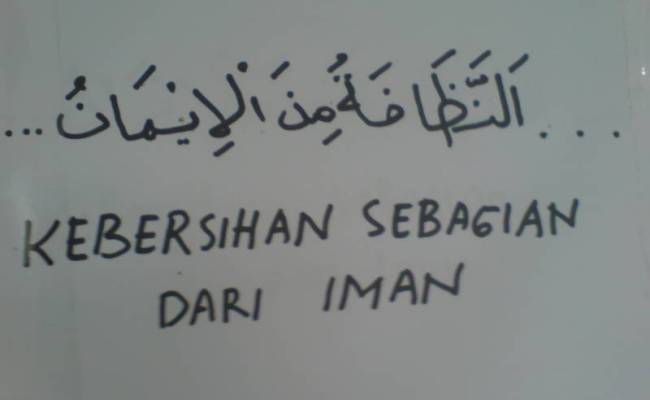 ...اَلنَّظَافَةُ مِنَ الْاِيْمَانُ...
KEBERSIHAN SEBAGIAN
DARI IMAN